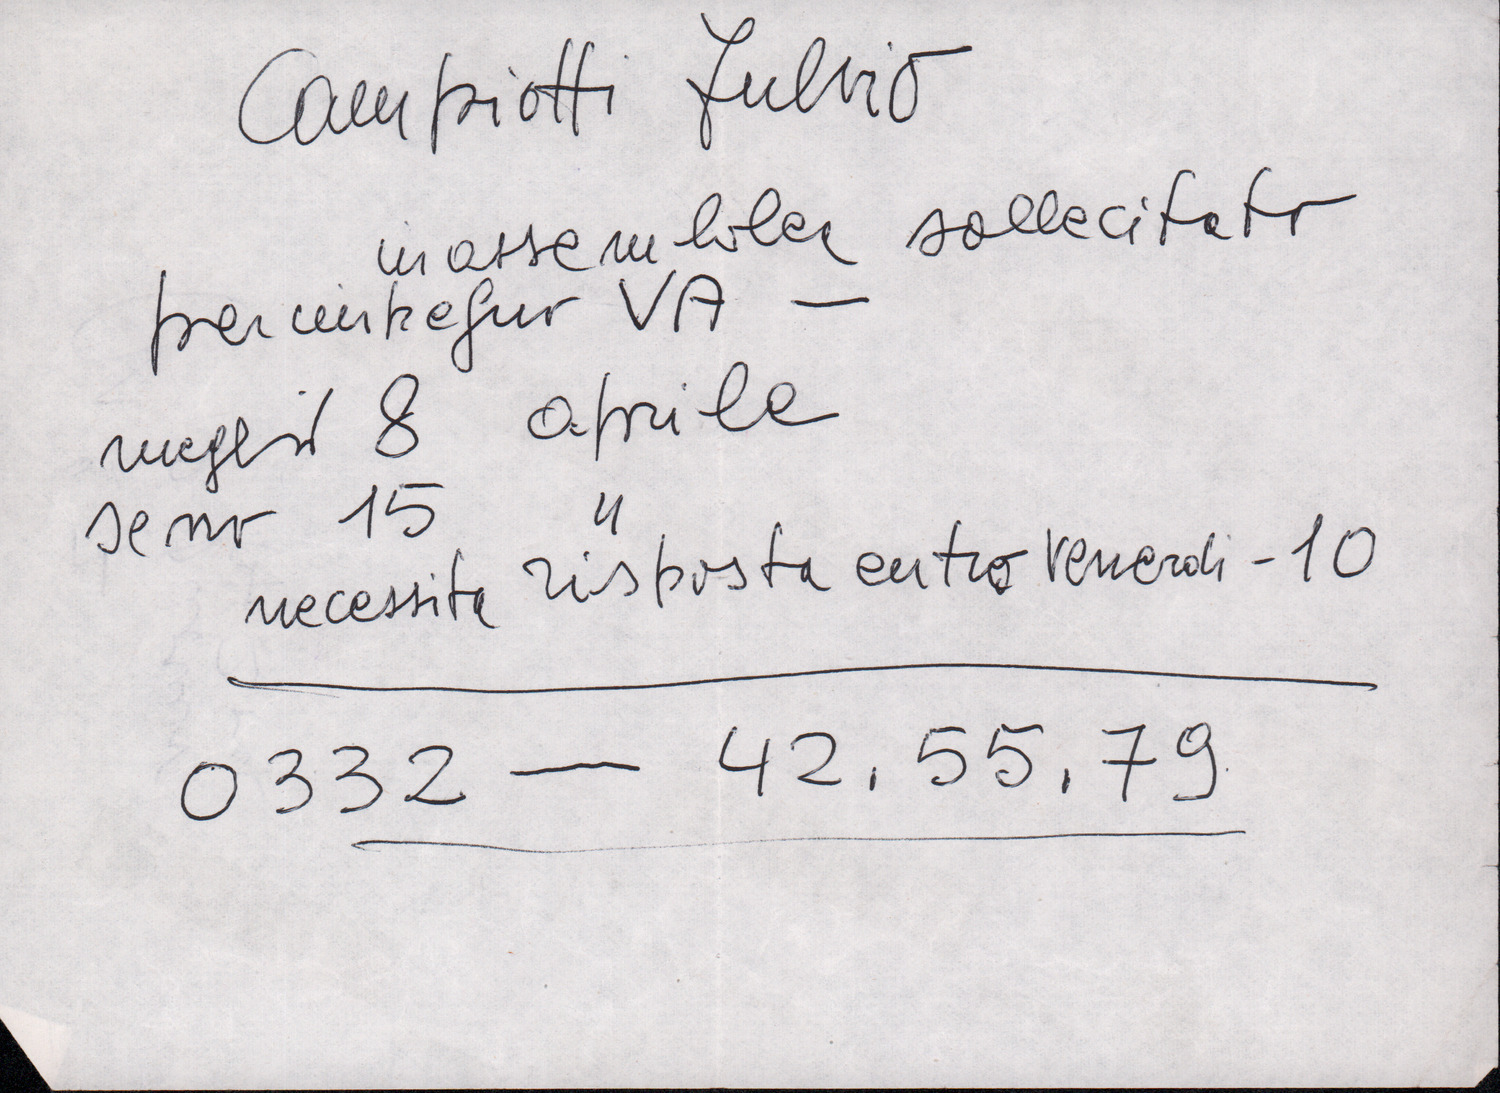 Campiotti Fulvio
in assemblea sollecitato
per minkegur VA —
meglio 8 aprile
se no 15 "
necessita risposta entro venerdi - 10
0332 — 42.55.79